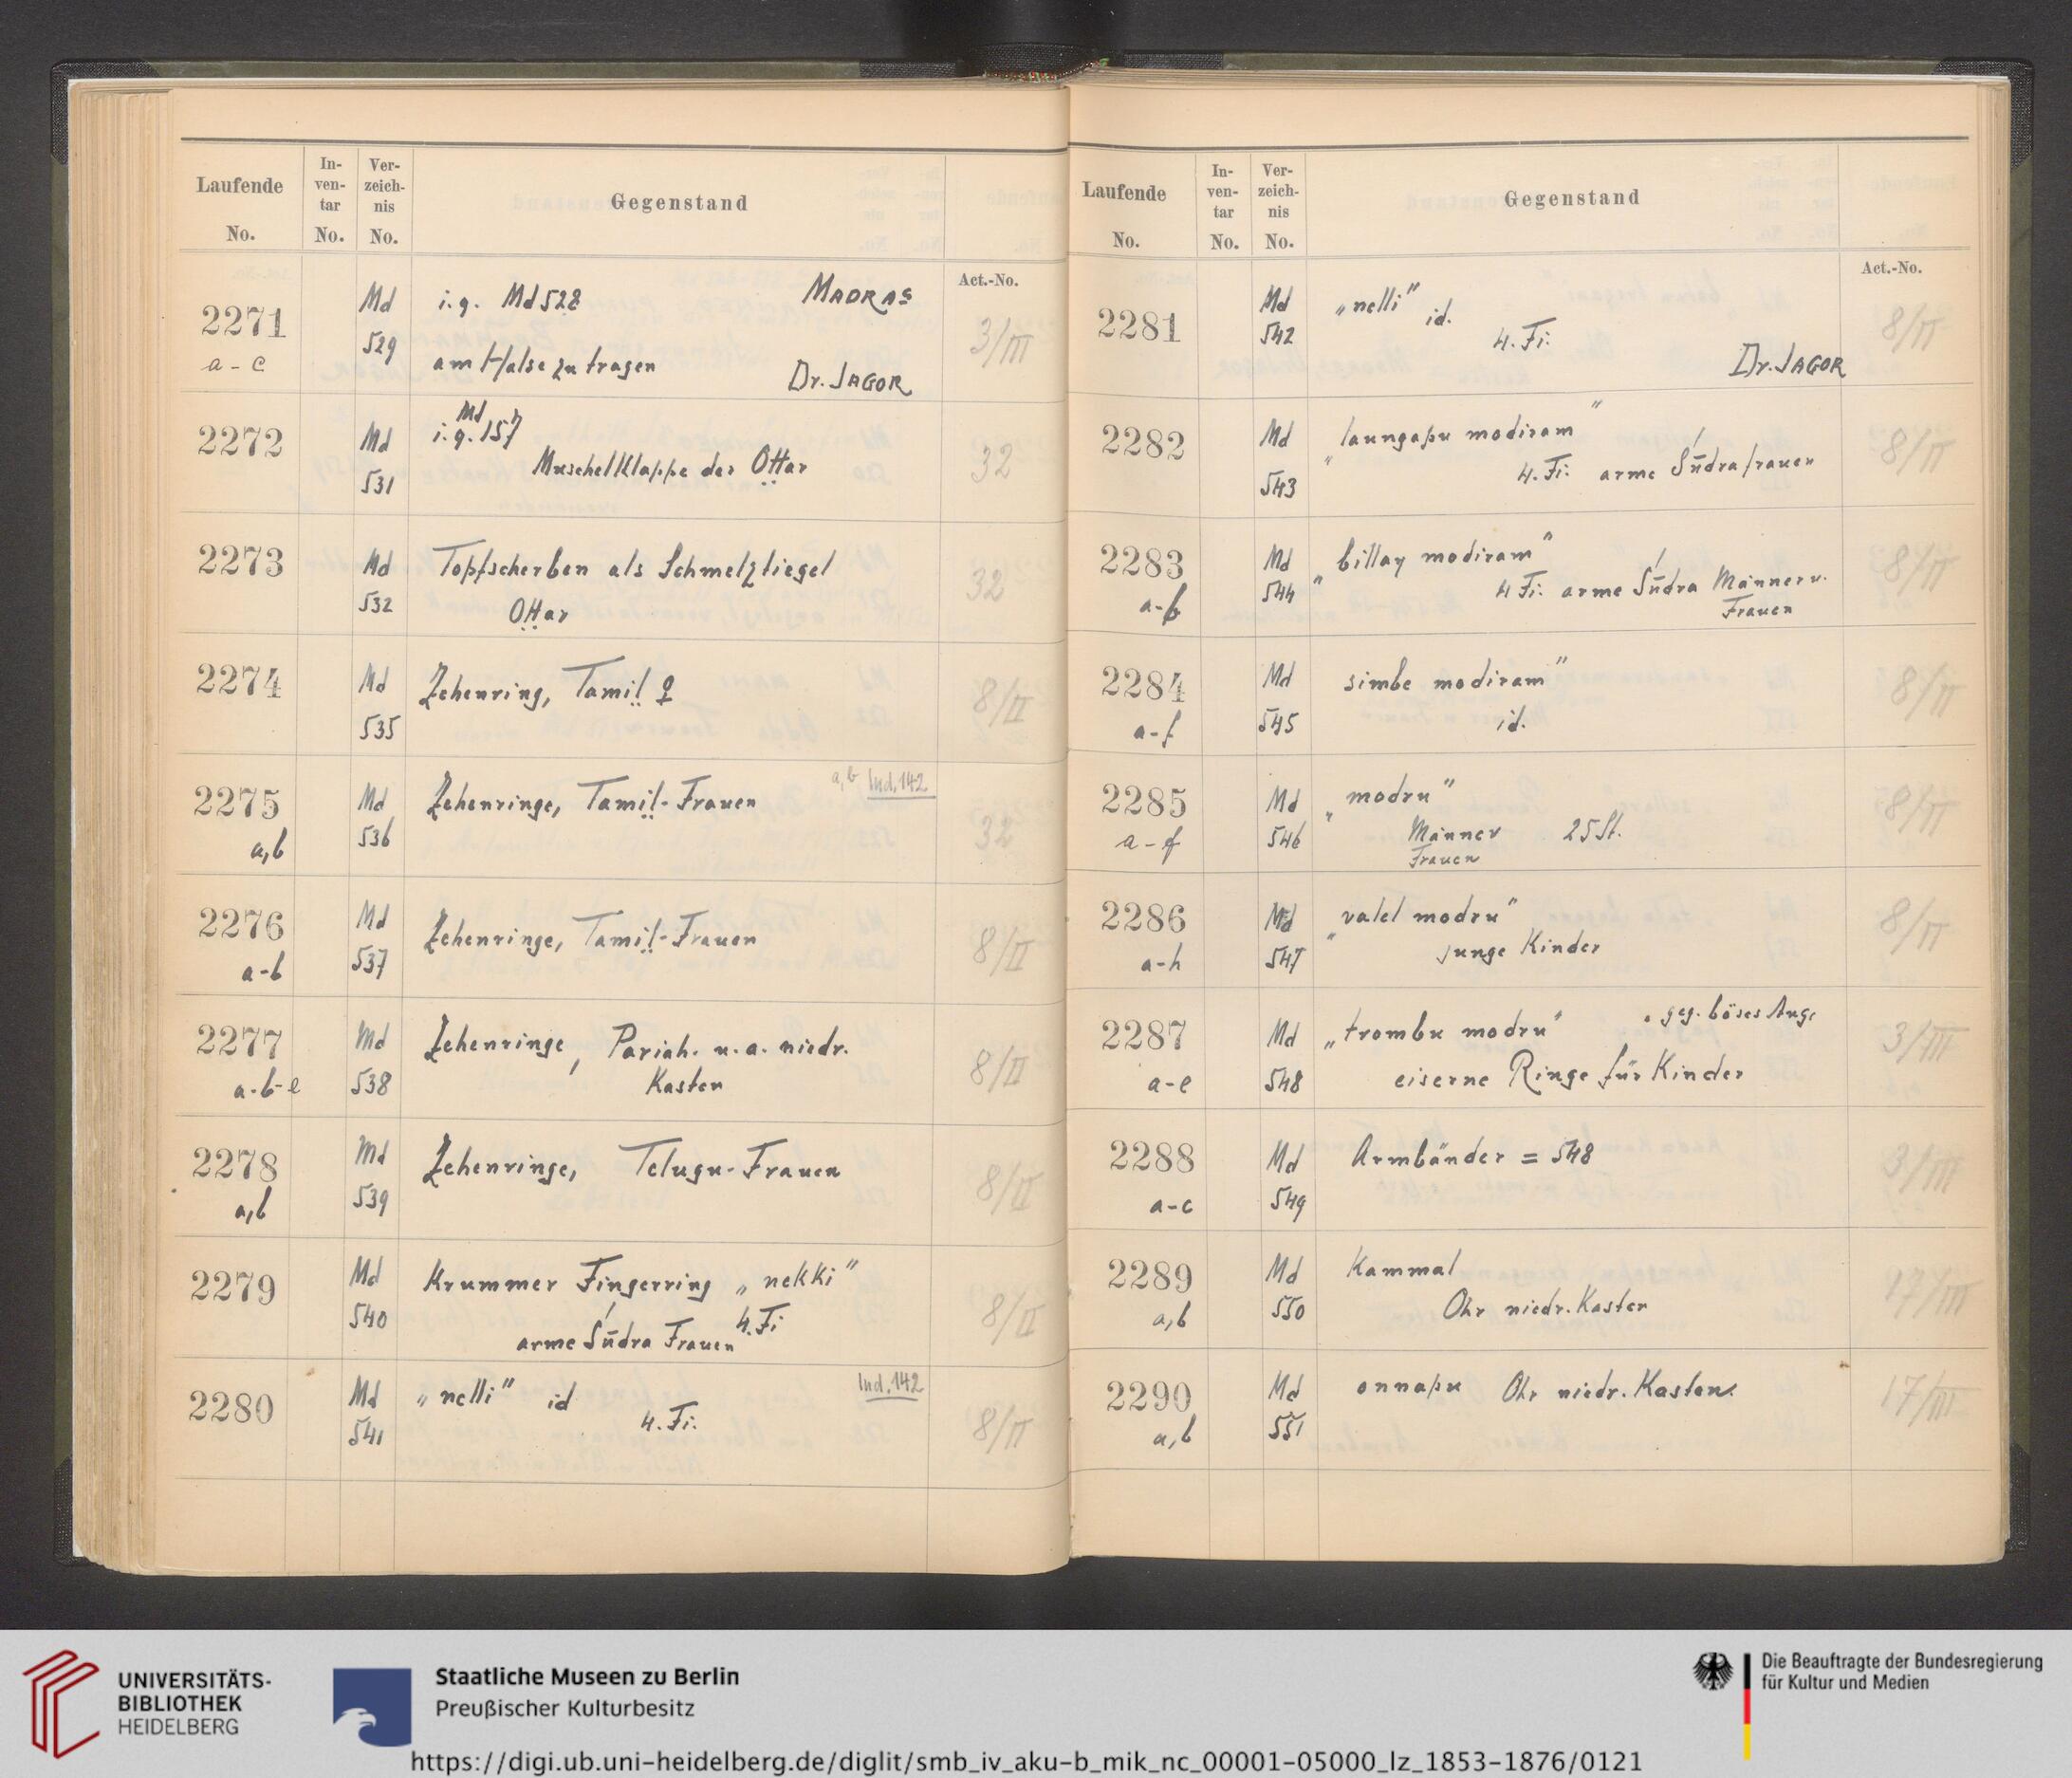 Laufende No.
In-ven-tar No.
Ver-zeich-nis No.
Gegenstand
Act.-No.
2271 a - c Md 529 i.q. Md 528 MADRAS
am Halse zu tragen Dr. JAGOR 3/III
2272 Md 531 i.q. Md 157
Muschelklappe der Ottar 32
2273 Md 532 Topfscherben als Schmelztiegel
Ottar 32
2274 Md 535 Zehenring, Tamil ♀ 8/II
2275 a,b Md 536 Zehenringe, Tamil-Frauen a,b Ind. 142 32
2276 a-b Md 537 Zehenringe, Tamil-Frauen 8/II
2277 a-b-e Md 538 Zehenringe, Pariah. u. a. niedr.
Kasten 8/II
2278 a,b Md 539 Zehenringe, Telugu-Frauen 8/II
2279 Md 540 Krummer Fingerring „nekki"
arme Śūdra Frauen 4. Fi 8/II
2280 Md 541 „nelli" id Ind. 142
4. Fi. 8/II
Laufende No.
In-ven-tar No.
Ver-zeich-nis No.
Gegenstand
Act.-No.
2281 Md 542 „nelli" id.
4. Fi. Dr. JAGOR 8/II
2282 Md 543 „laungapu modiram"
4. Fi. arme Śūdrafrauen 8/II
2283 a-b Md 544 „billay modiram"
4 Fi. arme Śūdra Männer u.
Frauen 8/II
2284 a-f Md 545 simbe modiram"
id. 8/II
2285 a-f Md 546 „modru"
Männer 25 St.
Frauen 8/II
2286 a-h Md 547 „valel modru"
junge Kinder 8/II
2287 a-e Md 548 „trombu modru" geg. böses Auge
eiserne Ringe für Kinder 3/III
2288 a-c Md 549 Armbänder = 548 3/III
2289 a,b Md 550 Kammal
Ohr niedr. Kasten 17/III
2290 a,b Md 551 onnapu Ohr niedr. Kasten 17/III
UNIVERSITÄTS-
BIBLIOTHEK
HEIDELBERG
Staatliche Museen zu Berlin
Preußischer Kulturbesitz
Die Beauftragte der Bundesregierung
für Kultur und Medien
https://digi.ub.uni-heidelberg.de/diglit/smb_iv_aku-b_mik_nc_00001-05000_lz_1853-1876/0121